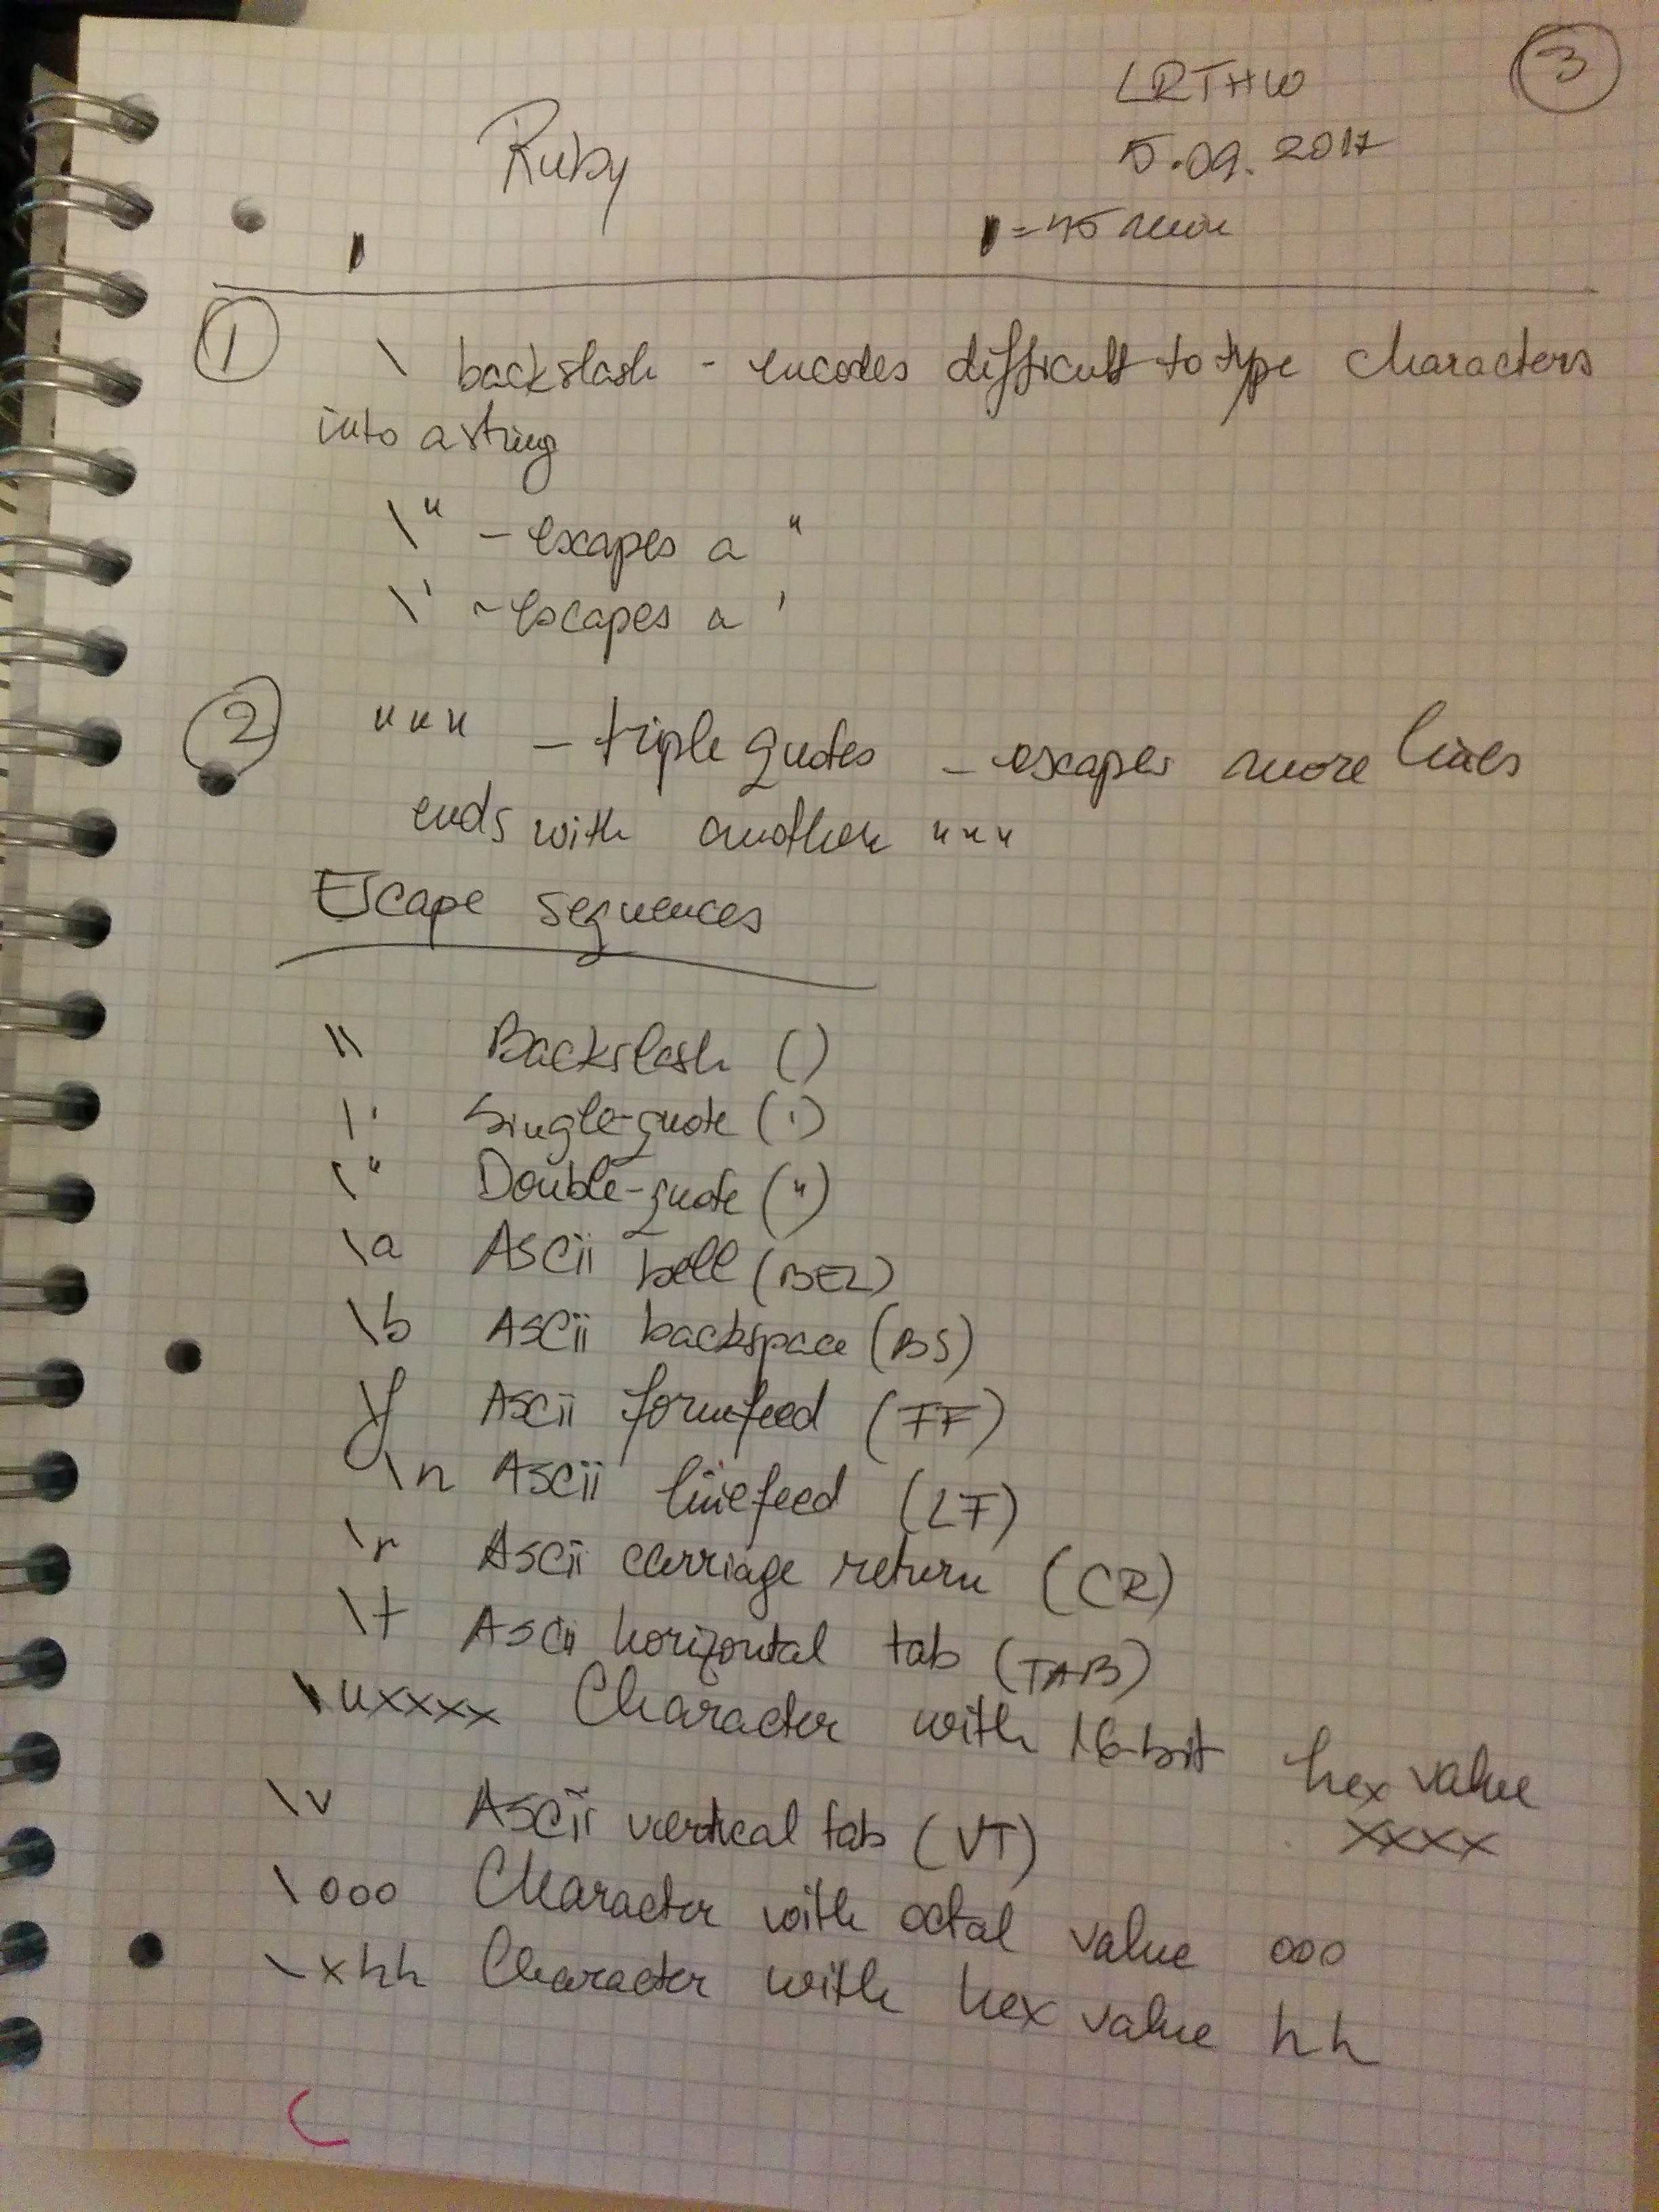 LRTHW
3
Ruby
5.09.2017
= 45 min
1 \ backslash - encodes difficult to type characters
into a string
\" - escapes a "
\' - escapes a '
2 """ - triple quotes - escapes more lines
ends with another """
Escape sequences
\\ Backslash ()
\' Single-quote (')
\" Double-quote (")
\a ASCii bell (BEL)
\b ASCii backspace (BS)
\f ASCii formfeed (FF)
\n ASCii linefeed (LF)
\r ASCii carriage return (CR)
\t ASCii horizontal tab (TAB)
\uxxxx Character with 16-bit hex value
xxxx
\v ASCii vertical tab (VT)
\ooo Character with octal value ooo
\xhh Character with hex value hh